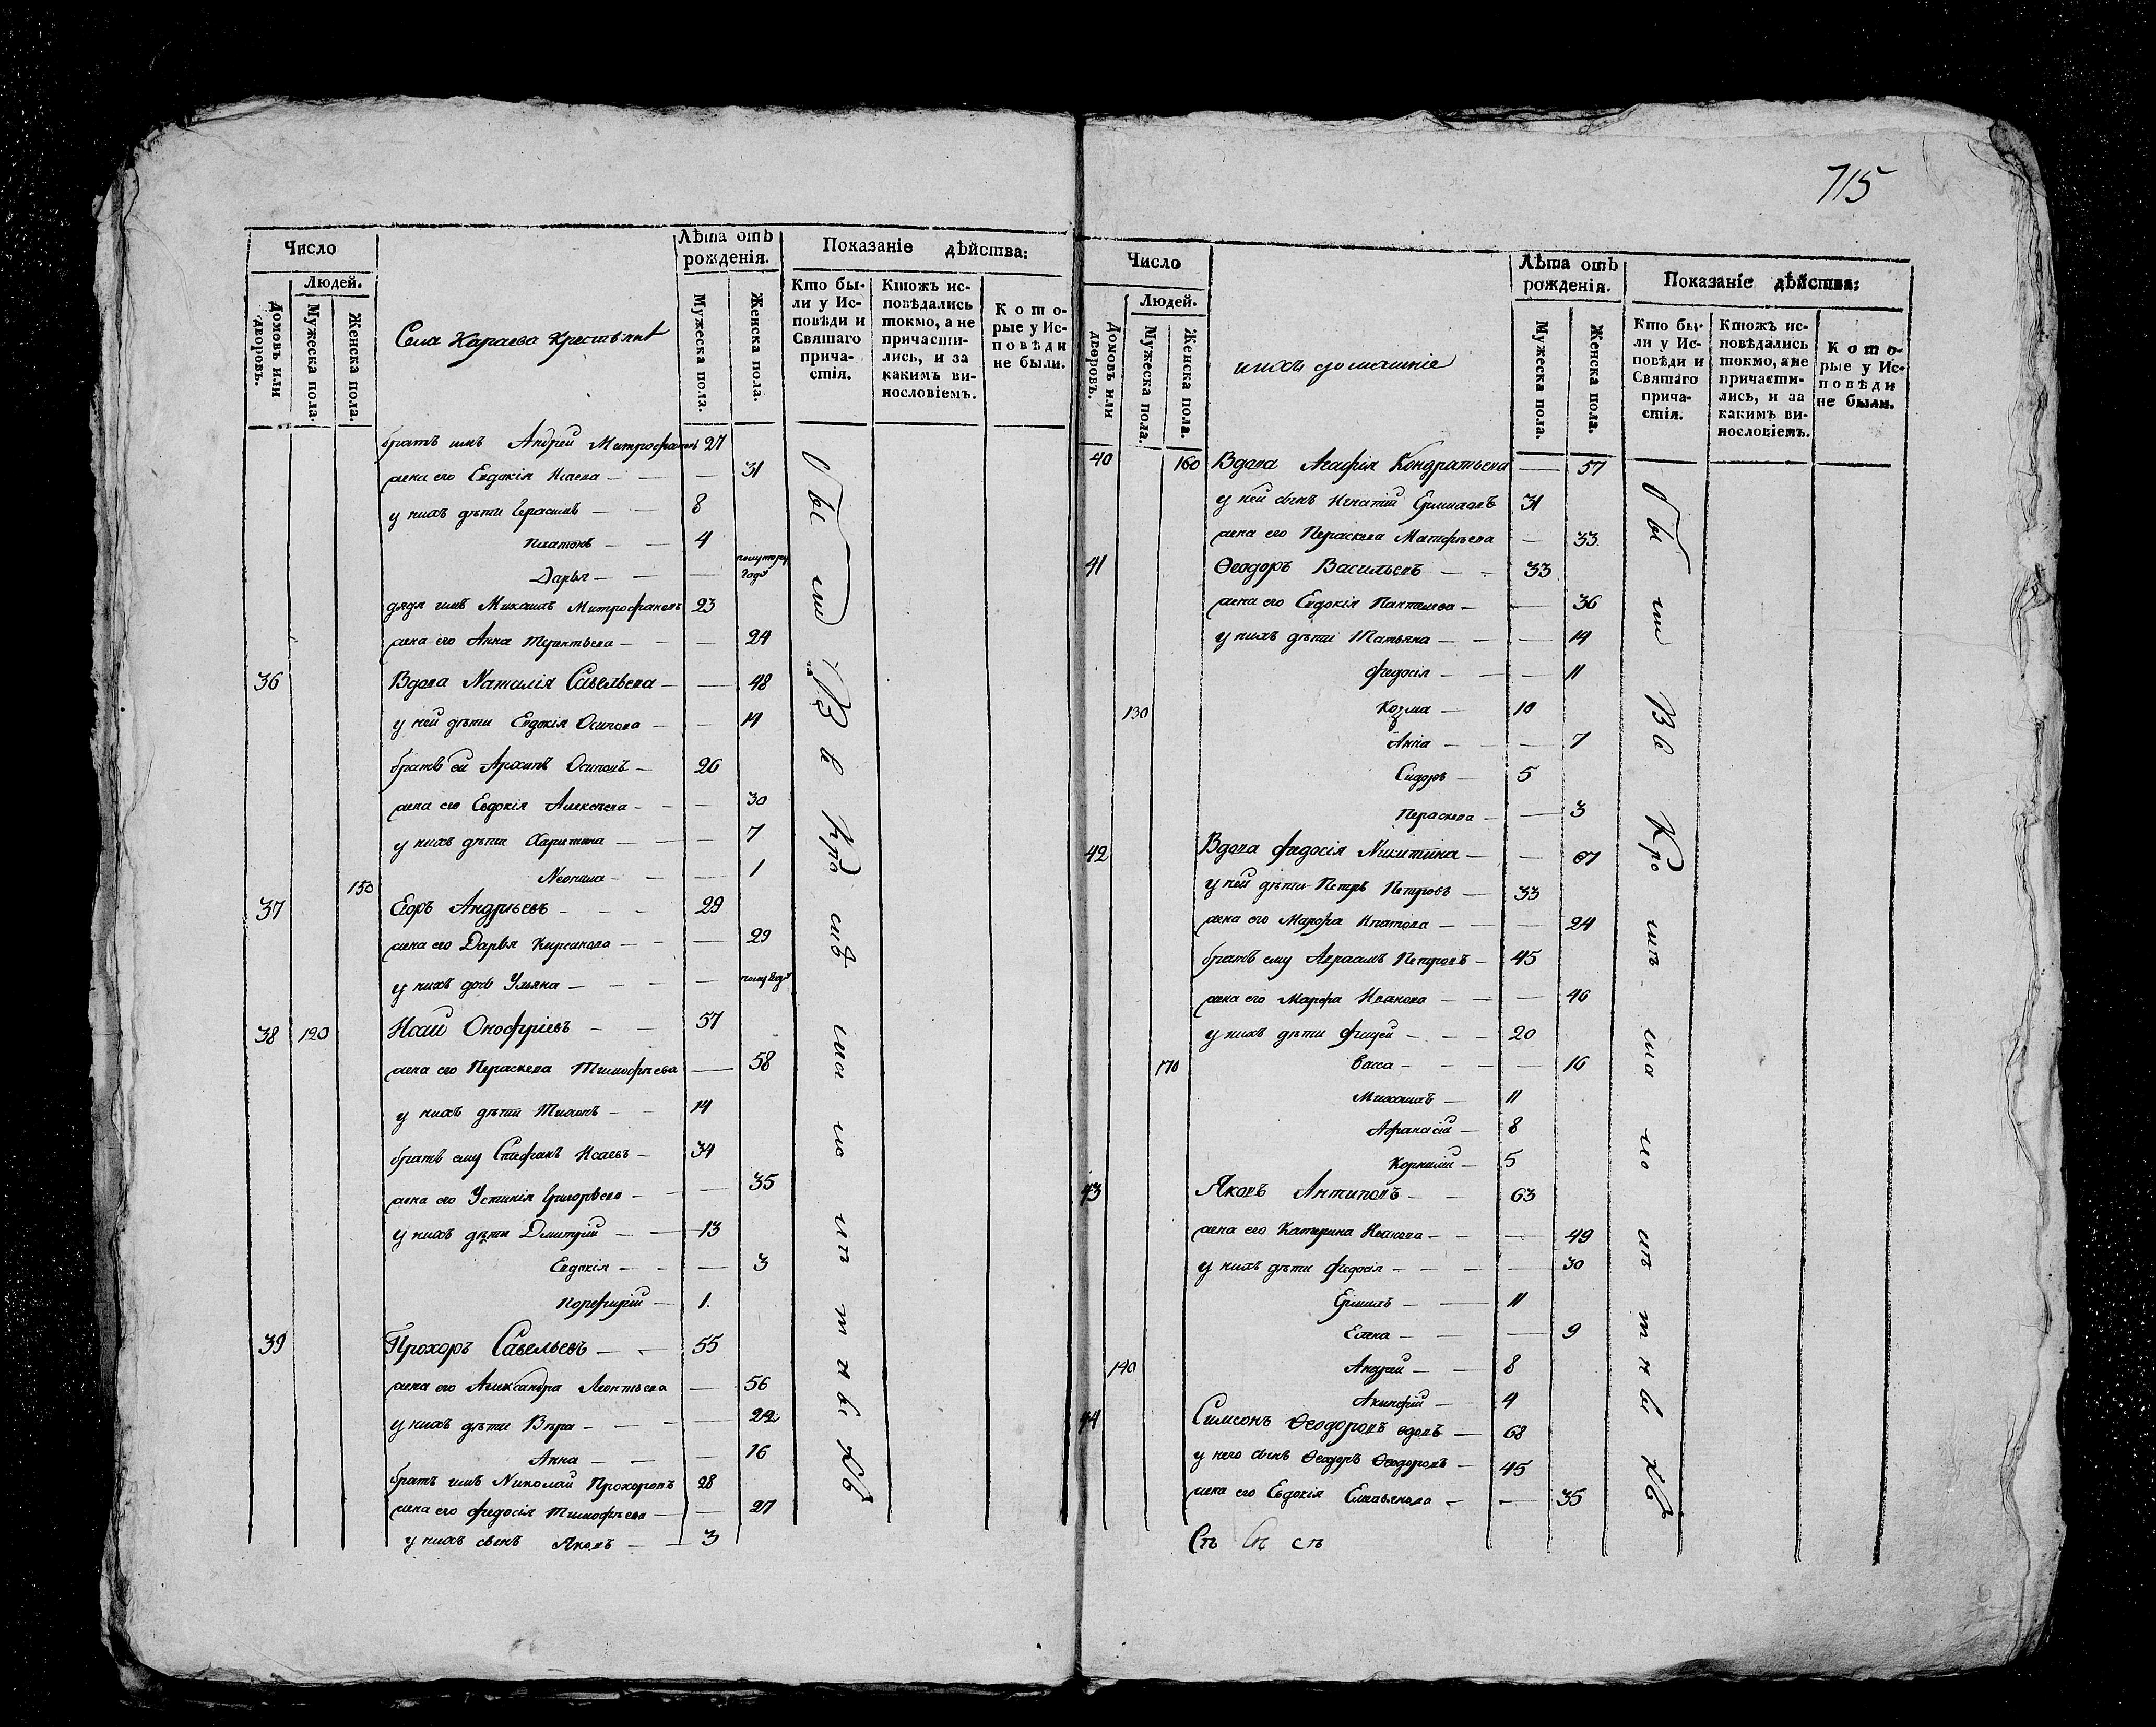 715
Число
Людей.
Домовъ или дворовъ.
Мужеска пола.
Женска пола.
Села Караева Крестьянѣ
Лѣта отъ рожденія.
Мужеска пола.
Женска пола.
Показаніе дѣйства:
Кто бы-
ли у Ис-
повѣди и
Святаго
прича-
стія.
Ктожъ ис-
повѣдались
токмо, а не
причасти-
лись, и за
какимъ ви-
нословіемъ.
Кото-
рые у Ис-
повѣди
не были.
братъ имъ Андрей Митрофановъ 27
жена его Евдокія Исаева — — — 31
у нихъ дѣти Герасимъ — — 8
Платонъ — — 4
Дарья — — — полутору году
дядя имъ Михаилъ Митрофановъ 23
жена его Анна Терентьева — — — 24
36 Вдова Наталія Савельева — — 48
у ней дѣти Евдокія Осипова — — 14
братъ ей Архипъ Осиповъ — 26
жена его Евдокія Алексѣева — — — 30
у нихъ дѣти Харитина — — — 7
Неонила — — — 1
150
37 Егоръ Андрѣевъ — — — 29
жена его Дарья Кирсанова — — — 29
у нихъ дочь Ульяна — — — — полу году
38 120 Исай Онофріевъ — — 57
жена его Пераскева Тимофѣева — 58
у нихъ дѣти Тихонъ — — 14
братъ ему Стефанъ Исаевъ — 34
жена его Устинія Григорьева — — — 35
у нихъ дѣти Дмитрій — — 13
Евдокія — — — 3
Порфирій — 1.
39 Прохоръ Савельевъ — — 55
жена его Александра Леонтьева — 56
у нихъ дѣти Вѣра — — — — 22
Анна — — — 16
братъ имъ Николай Прохоровъ 28
жена его Федосія Тимофѣева — — 27
у нихъ сынъ Яковъ — — 3
Число
Людей.
Домовъ или дворовъ.
Мужеска пола.
Женска пола.
ихъ домашніе
Лѣта отъ рожденія.
Мужеска пола.
Женска пола.
Показаніе дѣйства:
Кто бы-
ли у Ис-
повѣди и
Святаго
прича-
стія.
Ктожъ ис-
повѣдались
токмо, а не
причасти-
лись, и за
какимъ ви-
нословіемъ.
Кото-
рые у Ис-
повѣди
не были.
40 160 Вдова Агафія Кондратьева — 57
у ней сынъ Игнатій Ермиловъ 31
жена его Пераскева Матфѣева — 33
41 Ѳеодоръ Васильевъ — — 33
жена его Евдокія Пантелева — — 36
у нихъ дѣти Татьяна — — — 14
Федосія — — — 11
130 Козма — 10
Анна — — — 7
Сидоръ — 5
Пераскева — — 3
42 Вдова Федосія Никитина — — 67
у ней дѣти Петръ Петровъ — 33
жена его Марфа Ипатова — — — 24
братъ ему Авраамъ Петровъ — 45
жена его Марфа Иванова — — — 46
у нихъ дѣти Фадей — — — 20
170 Васса — — — — 16
Михаилъ — 11
Афанасій — 8
Корнилій — 5
43 Яковъ Антиповъ — — 63
жена его Катерина Иванова — — — 49
у нихъ дѣти Федосія — — — — 30
Ермилъ — — 11
Елена — — — 9
140 Андрей — — 8
Акинфій — 4
44 Симеонъ Ѳеодоровъ вдовъ — 68
у него сынъ Ѳеодоръ Ѳеодоровъ — 45
жена его Евдокія Емельянова — — 35